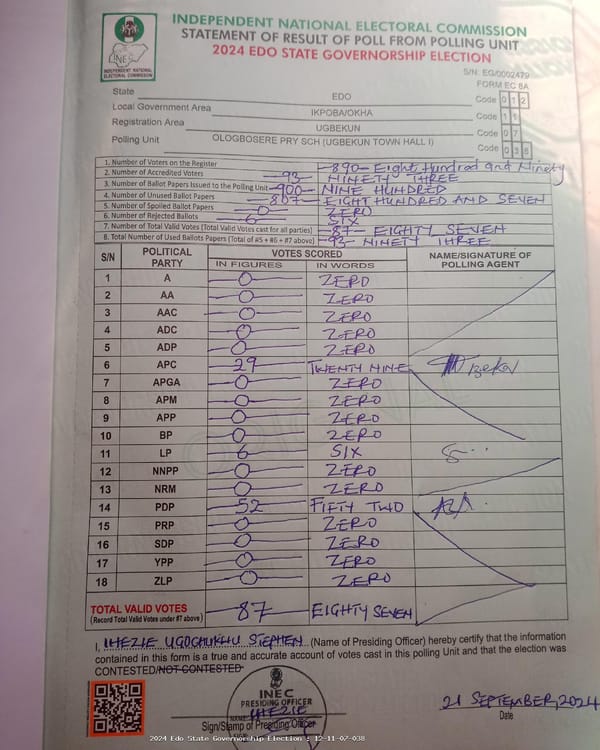 INEC
INDEPENDENT NATIONAL ELECTORAL COMMISSION
INDEPENDENT NATIONAL ELECTORAL COMMISSION
STATEMENT OF RESULT OF POLL FROM POLLING UNIT
2024 EDO STATE GOVERNORSHIP ELECTION
S/N: EG/0002479
FORM EC 8A
State EDO Code 0 1 2
Local Government Area IKPOBA/OKHA Code 1 1
Registration Area UGBEKUN Code 0 7
Polling Unit OLOGBOSERE PRY SCH (UGBEKUN TOWN HALL I) Code 0 3 8
1. Number of Voters on the Register 890 Eight Hundred and Ninety
2. Number of Accredited Voters 93 NINETY THREE
3. Number of Ballot Papers Issued to the Polling Unit 900 NINE HUNDRED
4. Number of Unused Ballot Papers 807 EIGHT HUNDRED AND SEVEN
5. Number of Spoiled Ballot Papers 0 ZERO
6. Number of Rejected Ballots 6 SIX
7. Number of Total Valid Votes (Total Valid Votes cast for all parties) 87 EIGHTY SEVEN
8. Total Number of Used Ballots Papers (Total of #5 + #6 + #7 above) 93 NINETY THREE
S/N POLITICAL PARTY VOTES SCORED NAME/SIGNATURE OF POLLING AGENT
IN FIGURES IN WORDS
1 A 0 ZERO
2 AA 0 ZERO
3 AAC 0 ZERO
4 ADC 0 ZERO
5 ADP 0 ZERO
6 APC 29 TWENTY NINE
7 APGA 0 ZERO
8 APM 0 ZERO
9 APP 0 ZERO
10 BP 0 ZERO
11 LP 6 SIX
12 NNPP 0 ZERO
13 NRM 0 ZERO
14 PDP 52 FIFTY TWO
15 PRP 0 ZERO
16 SDP 0 ZERO
17 YPP 0 ZERO
18 ZLP 0 ZERO
TOTAL VALID VOTES 87 EIGHTY SEVEN
(Record Total Valid Votes under #7 above)
I, IHEZIE UGOCHUKWU STEPHEN (Name of Presiding Officer) hereby certify that the information
contained in this form is a true and accurate account of votes cast in this polling Unit and that the election was
CONTESTED/NOT CONTESTED
INEC
PRESIDING OFFICER
IHEZIE
21 SEPTEMBER, 2024
Sign/Stamp of Presiding Officer Date
2024 Edo State Governorship Election : 12-11-07-038